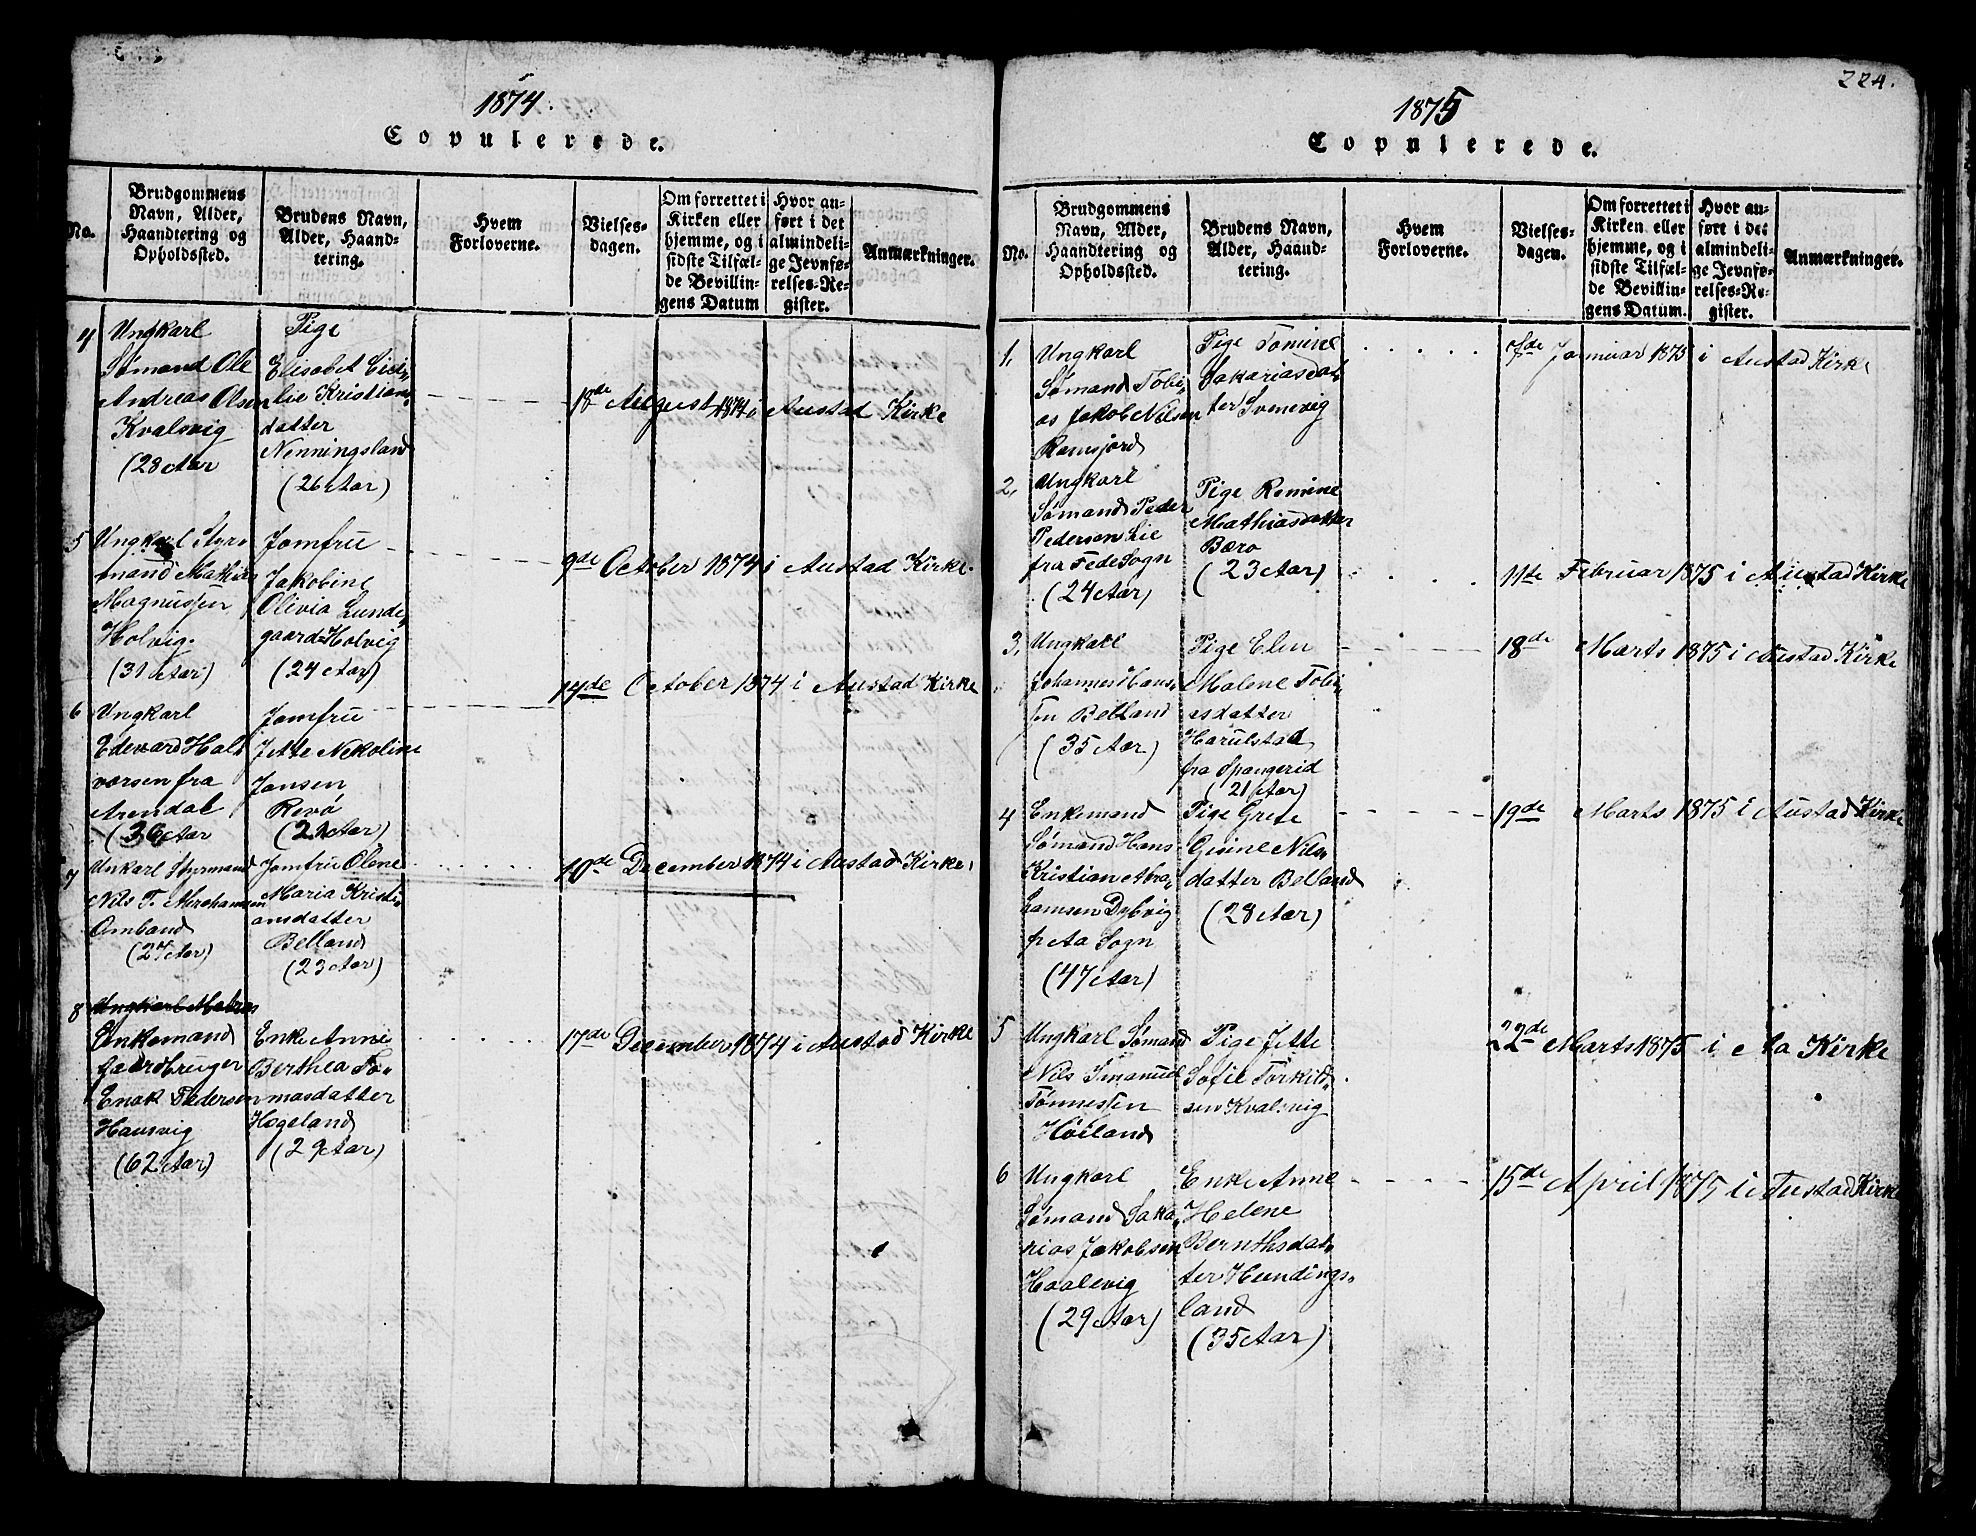 1874.
Copulerede.
No.
Brudgommens
Navn, Alder,
Haandtering og
Opholdssted.
Brudens Navn,
Alder, Haand-
tering.
Hvem
Forloverne.
Vielses-
dagen.
Om forrettet i
Kirken eller
hjemme, og i
sidste Tilfæl-
de Bevillin-
gens Datum
Hvor an-
ført i det
almindeli-
ge Jevnfø-
relses-Re-
gister.
Anmærkninger.
4
Ungkarl
Sømand Ole
Andreas Olsen
Kvalsvig
(28 Aar
Pige
Elisabet
lie Kristian„
datter
Nenningsland
(26 Aar)
18de August 1874 i Austad Kirke
5
Ungkarl Styr„
mand Mathias
Magnussen
Holvig.
(31 Aar)
Jomfru
Jakobine
Olivia Lunde„
gaard Holvig
(24 Aar)
9de October 1874 i Austad Kirke.
6
Ungkarl
Edevard Hal„
vorsen fra
Arendal
(36 Aar
Jomfru
Jette Nekoline
Jansen
Revø
(22 Aar)
14de October 1874 i Austad Kirke
7
Unkarl Styrmand
Nils T. Abrahamsen
Omland
(27 Aar)
Jomfru Olene
Maria Kristi„
ansdatter
Belland
(23 Aar)
10de December 1874 i Austad Kirke.
8
Ungkarl
Enkemand
Gaardbruger
Enok Pedersen
Hausvig
(62 Aar)
Enke Anne
Berthea To„
masdatter
Høgeland
(29 Aar)
17de December 1874 i Austad Kirke
224.
1875
Copulerede.
No.
Brudgommens
Navn, Alder,
Haandtering og
Opholdssted.
Brudens Navn,
Alder, Haand-
tering.
Hvem
Forloverne.
Vielses-
dagen.
Om forrettet i
Kirken eller
hjemme, og i
sidste Tilfæl-
de Bevillin-
gens Datum.
Hvor an-
ført i det
almindeli-
ge Jevnfø-
relses-Re-
gister.
Anmærkninger.
1,
Ungkarl
Sømand Tobi„
as Jakob Nilsen
Ramsjord
Pige Tomine
Sakariasdat„
ter Svenevig
7de Januar 1875 i Austad Kirke
2,
Ungkarl
Sømand Peder
Pedersen Lie
fra Fede Sogn
(24 Aar)
Pige Romine
Mathiasdatter
Bærø
(23 Aar)
11te Februar 1875 i Austad Kirke
3,
Ungkarl
Johannes Hans„
sen Belland
(35 Aar)
Pige Elen
Malene Tobi„
asdatter
Harulstad
fra Spangerid
(21 Aar)
18de Marts 1875 i Austad Kirke
4
Enkemand
Sømand Hans
Kristian Abra„
hamsen Dybvig
fr Aa Sogn
(47 Aar)
Pige Grete
Gurine Nils„
datter Belland
(28 Aar)
19de Marts 1875 i Austad Kirke
5
Ungkarl Sømand
Nils Emanuel
Tønnesten
Høiland
Pige Jette
Sofie Torkild„
sen Kvalsvig
22de Marts 1875 i Aa Kirke
6
Ungkarl
Sømand Saka„
rias Jakobsen
Haalevig
(29 Aar)
Enke Anne
Helene
Bernthsdat„
ter Hundings„
land
(35 Aar)
15de April 1875 i Austad Kirke